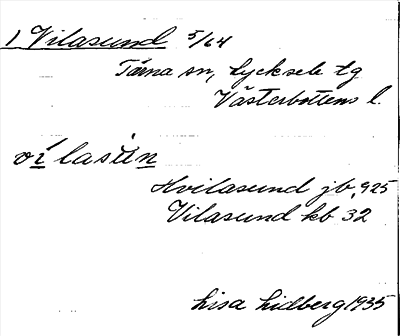 1 Vilasund 5/64
Tärna sn, Lycksele tg
Västerbottens l.
vi´lasun
Hvilasund jb. 925
Vilasund kb 32
Lisa Lidberg 1935